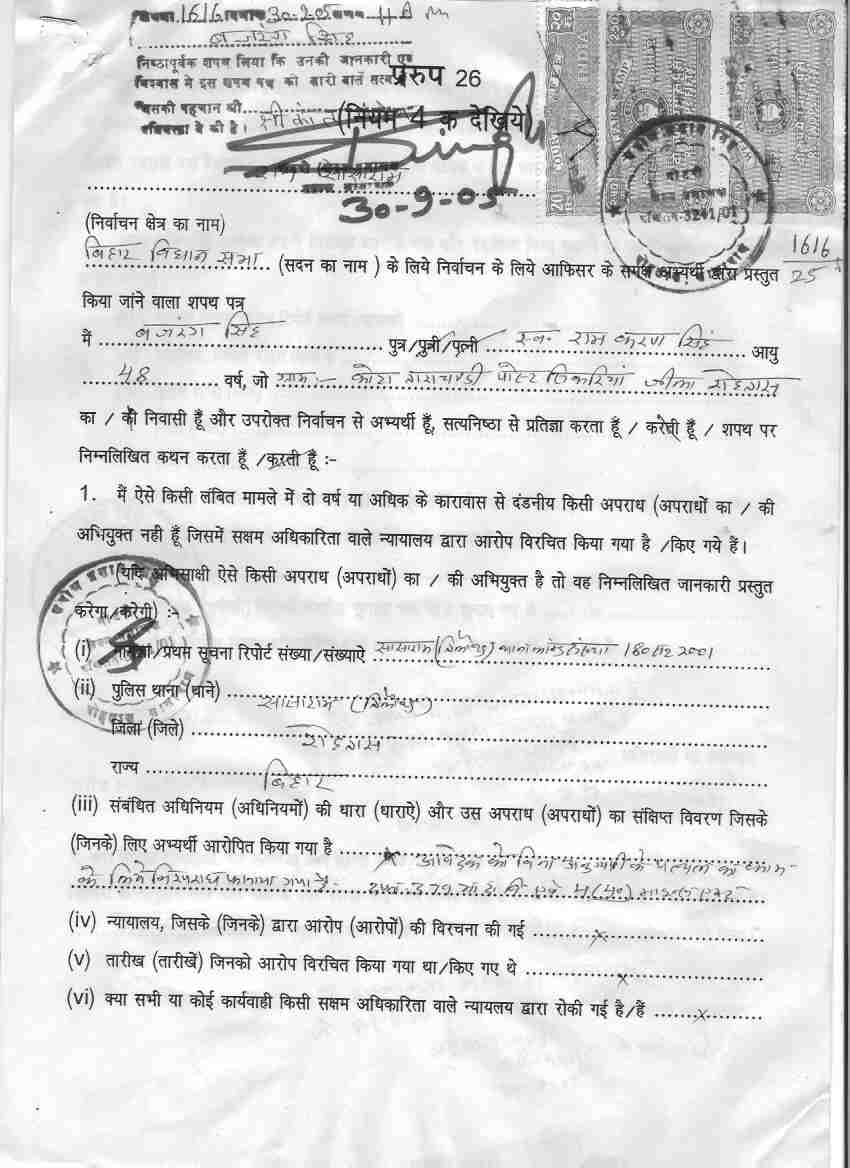 संख्या 1616 दिनांक 30-9-05 समय 11 A m
बजरंग सिंह
निष्ठापूर्वक शपथ लिया कि उनकी जानकारी एवं
विश्वास मे इस शपथ पत्र की सारी बातें सत्य
प्ररुप 26
जिसकी पहचान श्री
(नियम 4 क देखिये)
30-9-05
INDIA
1616
25
(निर्वाचन क्षेत्र का नाम)
बिहार विधान सभा (सदन का नाम ) के लिये निर्वाचन के लिये आफिसर के समक्ष अभ्यर्थी द्वारा प्रस्तुत
किया जांने वाला शपथ पत्र
में बजरंग सिंह पुत्र/पुत्री/पत्नी स्व० राम करण सिंह आयु
48 वर्ष, जो ग्राम:- पोस्ट जिला रोहतास
का / की निवासी हूँ और उपरोक्त निर्वाचन से अभ्यर्थी हूँ, सत्यनिष्ठा से प्रतिज्ञा करता हूँ / करती हूँ / शपथ पर
निम्नलिखित कथन करता हूँ /करती हूँ :-
1. मैं ऐसे किसी लंबित मामले में दो वर्ष या अधिक के कारावास से दंडनीय किसी अपराध (अपराधों का / की
अभियुक्त नही हूँ जिसमें सक्षम अधिकारिता वाले न्यायालय द्वारा आरोप विरचित किया गया है /किए गये हैं।
(यदि अभिसाक्षी ऐसे किसी अपराध (अपराधों) का / की अभियुक्त है तो वह निम्नलिखित जानकारी प्रस्तुत
करेगा/करेगी) :-
(i) मामला/प्रथम सूचना रिपोर्ट संख्या/संख्याऐ सासाराम 180 2001
(ii) पुलिस थाना (थाने) सासाराम
जिला (जिले) रोहतास
राज्य बिहार
(iii) संबंधित अधिनियम (अधिनियमों) की धारा (धाराऐ) और उस अपराध (अपराधों) का संक्षिप्त विवरण जिसके
(जिनके) लिए अभ्यर्थी आरोपित किया गया है आवेदक को बिना
के लिये गया है 379
(iv) न्यायालय, जिसके (जिनके) द्वारा आरोप (आरोपों) की विरचना की गई x
(v) तारीख (तारीखें) जिनको आरोप विरचित किया गया था/किए गए थे x
(vi) क्या सभी या कोई कार्यवाही किसी सक्षम अधिकारिता वाले न्यायलय द्वारा रोकी गई है/हैं x